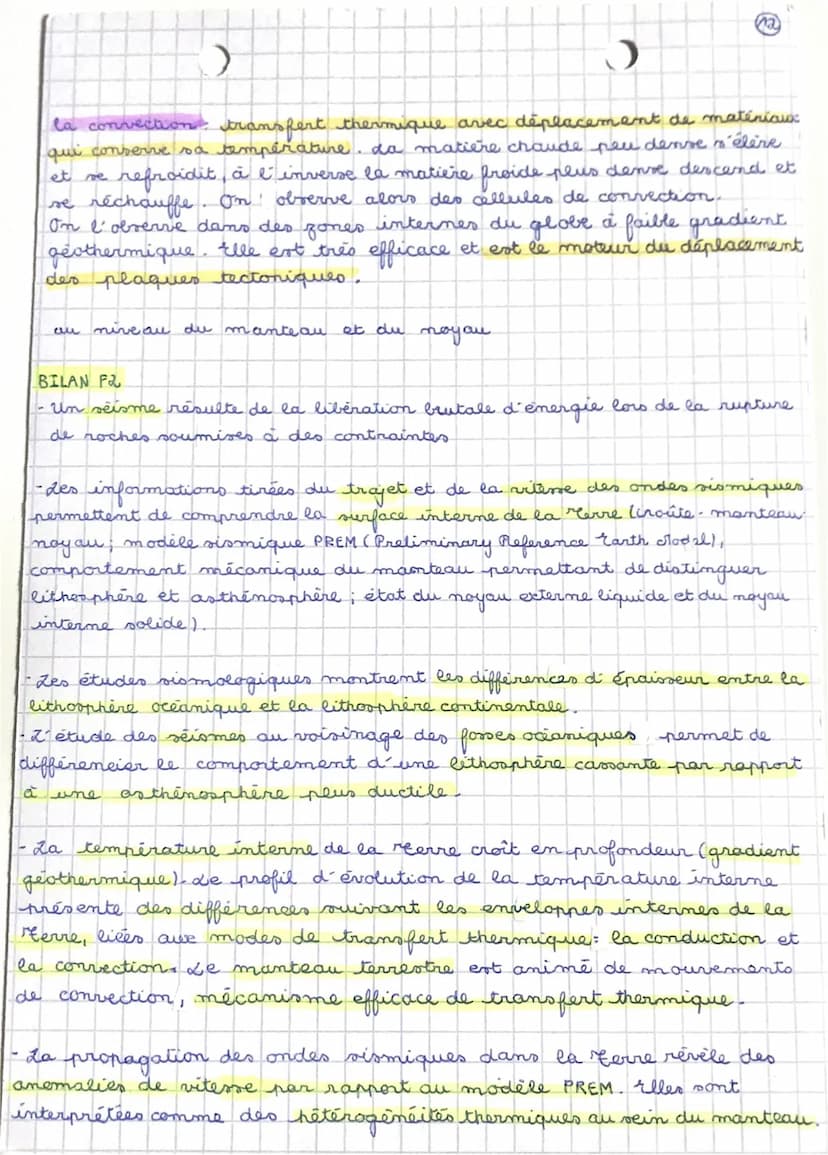 12
la convection : transfert thermique avec déplacement de matériaux
qui conserve sa température. La matière chaude peu dense s'élève
et se refroidit, à l'inverse la matière froide plus dense descend et
se réchauffe. On observe alors des cellules de convection.
On l'observe dans des zones internes du globe à faible gradient
géothermique. Elle est très efficace et est le moteur du déplacement
des plaques tectoniques.
au niveau du manteau et du noyau
BILAN F2
- Un séisme résulte de la libération brutale d'énergie lors de la rupture
de roches soumises à des contraintes
- Les informations tirées du trajet et de la vitesse des ondes sismiques
permettent de comprendre la surface interne de la Terre (croûte - manteau
noyau ; modèle sismique PREM (Preliminary Reference Earth Model),
comportement mécanique du manteau permettant de distinguer
lithosphère et asthénosphère ; état du noyau externe liquide et du noyau
interne solide).
- Les études sismologiques montrent les différences d'épaisseur entre la
lithosphère océanique et la lithosphère continentale.
- L'étude des séismes au voisinage des fosses océaniques permet de
différencier le comportement d'une lithosphère cassante par rapport
à une asthénosphère plus ductile.
- La température interne de la Terre croît en profondeur (gradient
géothermique). Le profil d'évolution de la température interne
présente des différences suivant les enveloppes internes de la
Terre, liées aux modes de transfert thermique : la conduction et
la convection. Le manteau terrestre est animé de mouvements
de convection, mécanisme efficace de transfert thermique.
- La propagation des ondes sismiques dans la Terre révèle des
anomalies de vitesse par rapport au modèle PREM. Elles sont
interprétées comme des hétérogénéités thermiques au sein du manteau.